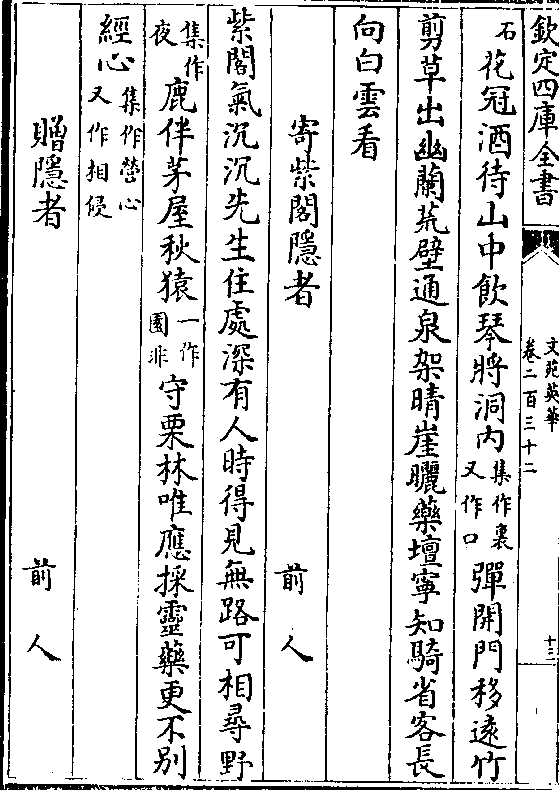 欽定四庫全書
文苑英華
卷二百三十二
十三
石花冠酒待山中飲琴將洞內集作裏又作口彈開門移遠竹
剪草出幽蘭荒壁通泉架晴崖曬藥壇寧知騎省客長
向白雲看
寄紫閣隱者 前人
紫閣氣沉沉先生住處深有人時得見無路可相尋野
集作夜鹿伴茅屋秋猿一作園非守栗林唯應採靈藥更不别
經心集作營心又作相侵
贈隱者 前人